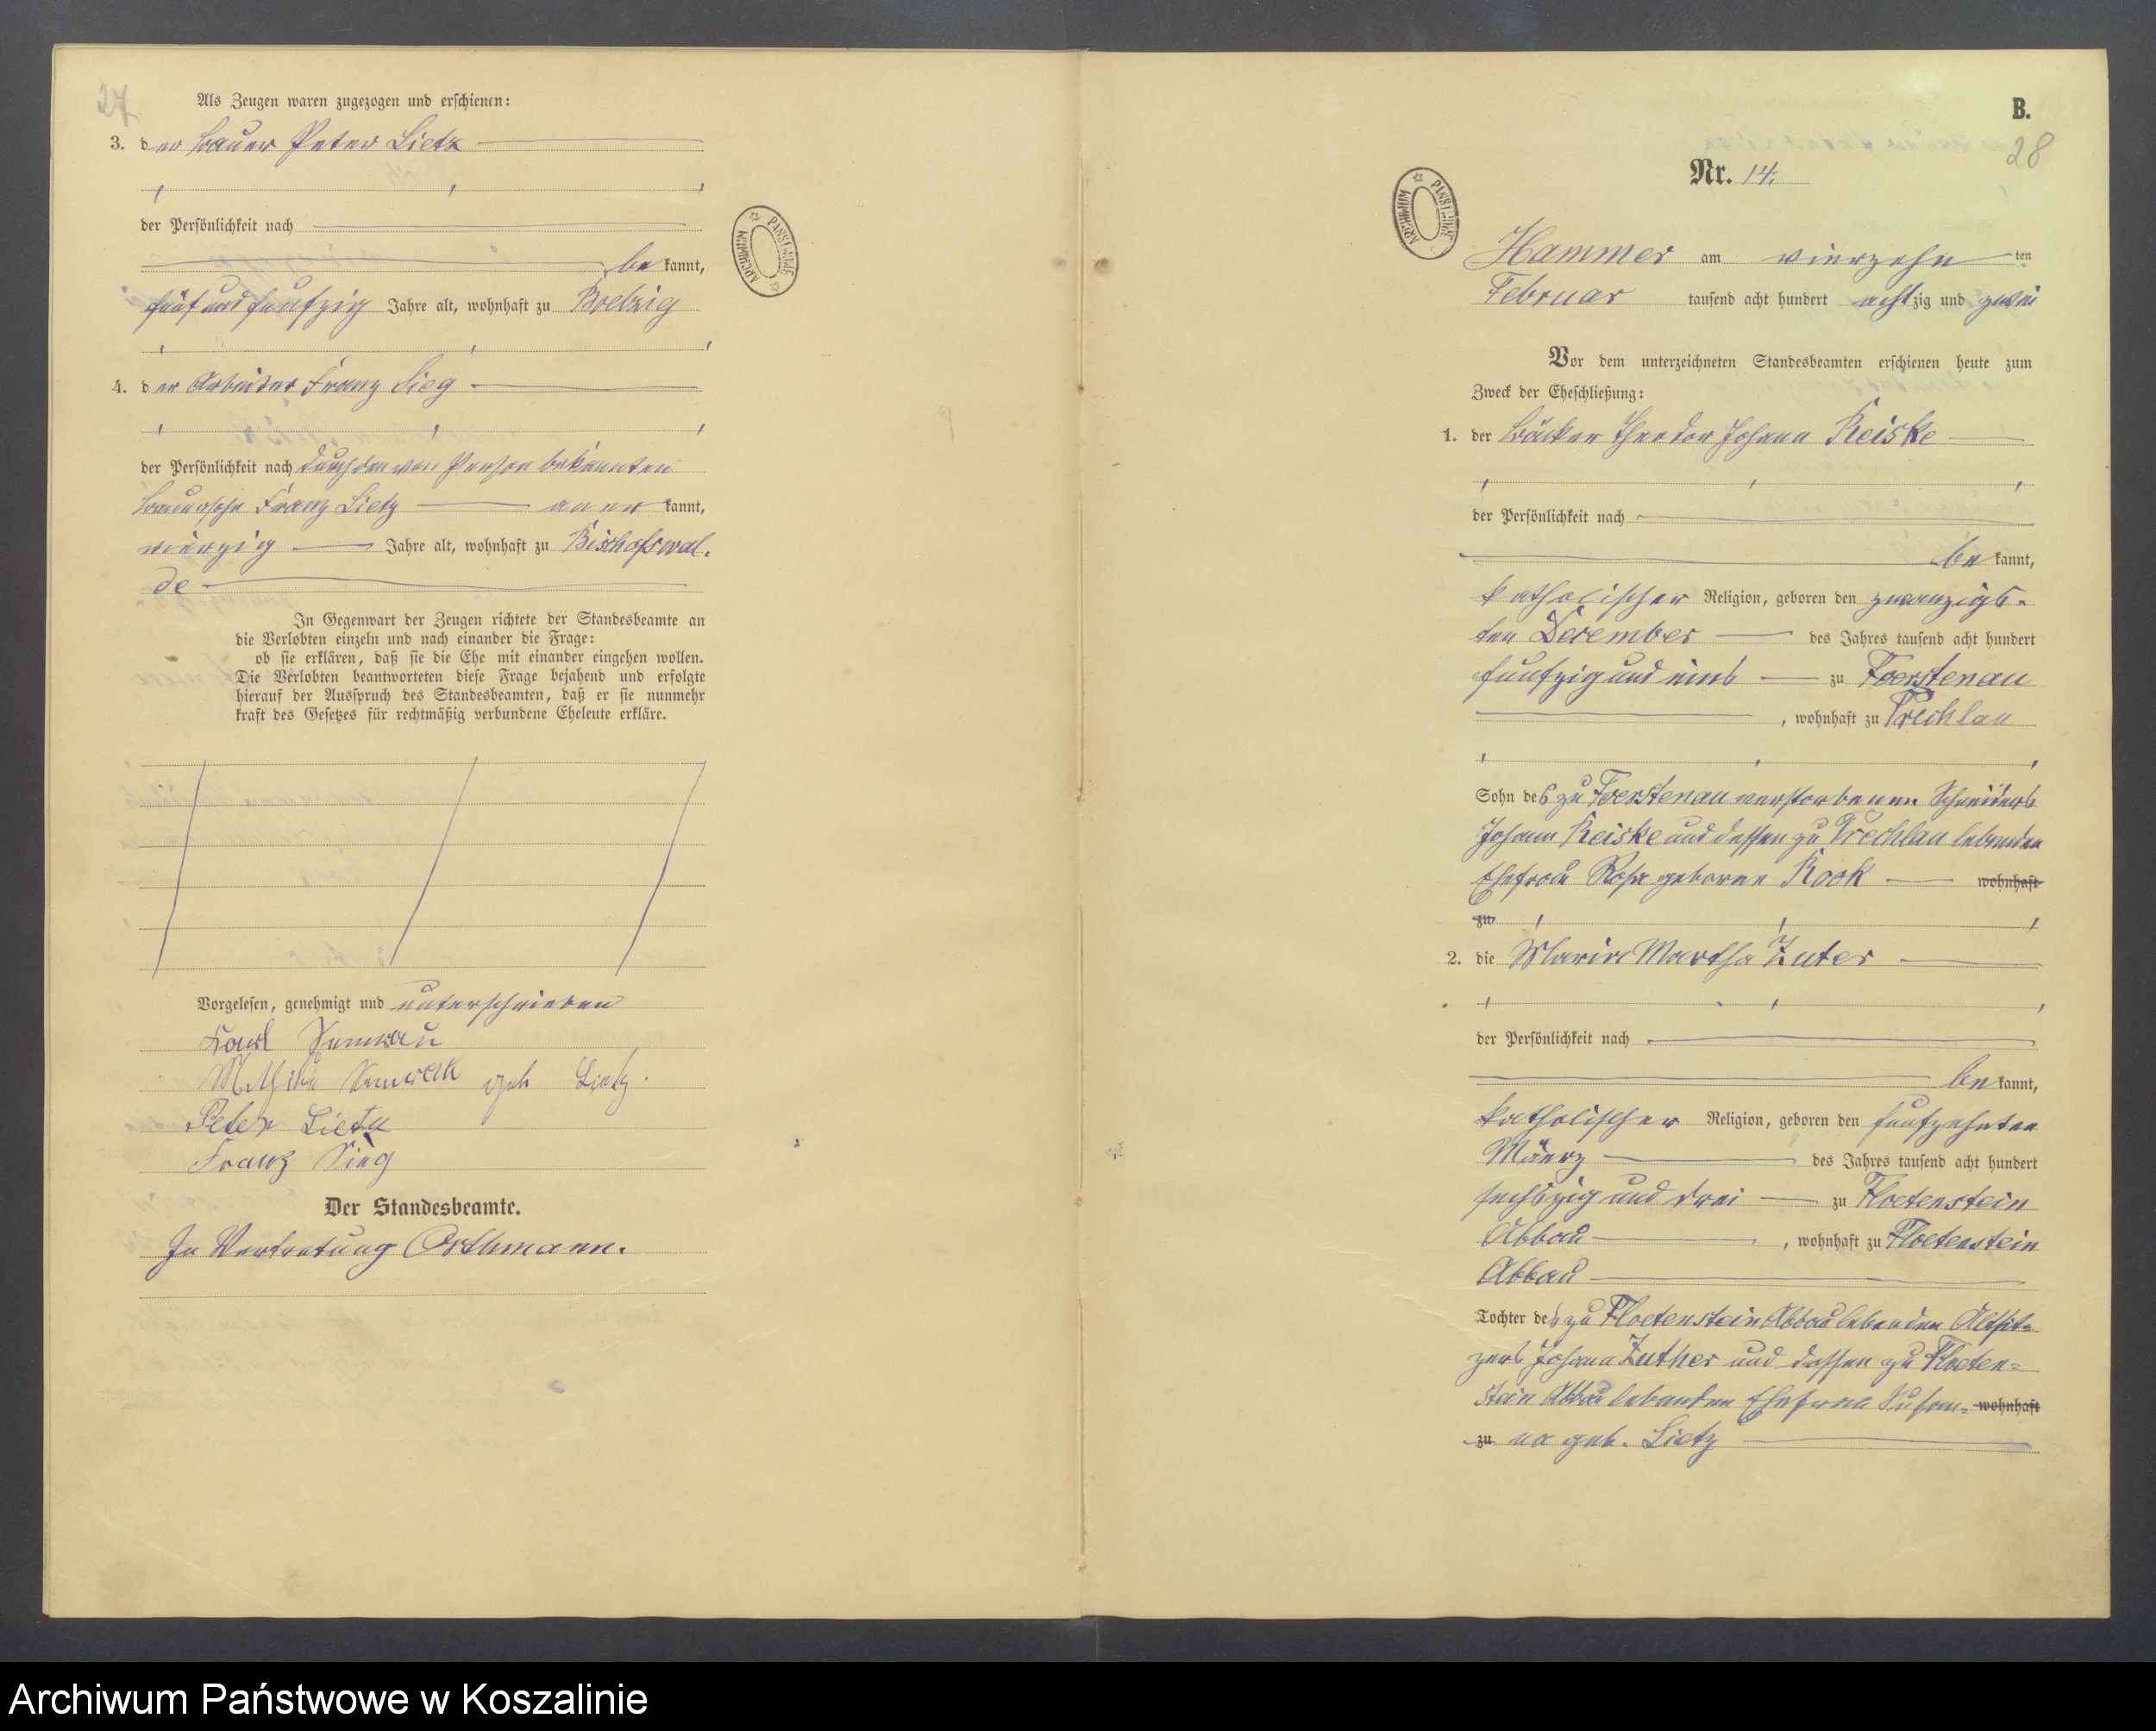 27
Als Zeugen waren zugezogen und erschienen:
3. der Bauer Peter Lietz
der Persönlichkeit nach
be kannt,
fünf und fünfzig Jahre alt, wohnhaft zu Boelzig
4. der Arbeiter Franz Sieg
der Persönlichkeit nach durch den von Person bekannten
Bauersohn Franz Lietz aner kannt,
vierzig Jahre alt, wohnhaft zu Bischofswal-
de
In Gegenwart der Zeugen richtete der Standesbeamte an
die Verlobten einzeln und nach einander die Frage:
ob sie erklären, daß sie die Ehe mit einander eingehen wollen.
Die Verlobten beantworteten diese Frage bejahend und erfolgte
hierauf der Ausspruch des Standesbeamten, daß er sie nunmehr
kraft des Gesetzes für rechtmäßig verbundene Eheleute erkläre.
Vorgelesen, genehmigt und unterschrieben
Karl
geb Lietz.
Peter Lietz
Franz Sieg
Der Standesbeamte.
In Vertretung Orthmann.
ARCHIWUM PAŃSTWOWE
B.
28
Nr. 14.
ARCHIWUM PAŃSTWOWE
Hammer am vierzehn ten
Februar tausend acht hundert achtzig und zwei
Vor dem unterzeichneten Standesbeamten erschienen heute zum
Zweck der Eheschließung:
1. der Bäcker Theodor Johann Reiske
der Persönlichkeit nach
be kannt,
katholischer Religion, geboren den zwanzigs-
ten December des Jahres tausend acht hundert
fünfzig und eins zu Foerstenau
, wohnhaft zu Prechlau
Sohn des zu Foerstenau verstorbenen Schneiders
Johann Reiske und dessen zu Prechlau lebenden
Ehefrau Rosa geborne Rook wohnhaft
zu
2. die Maria Martha Zuter
der Persönlichkeit nach
be kannt,
katholischer Religion, geboren den fünfzehnten
Maerz des Jahres tausend acht hundert
sechszig und drei zu Floetenstein
Abbau , wohnhaft zu Floetenstein
Abbau
Tochter des zu Floetenstein Abbau lebenden Altsit-
zers Johann Zuther und dessen zu Floeten-
stein Abbau lebenden Ehefrau Susan- wohnhaft
zu na geb. Lietz
Archiwum Państwowe w Koszalinie